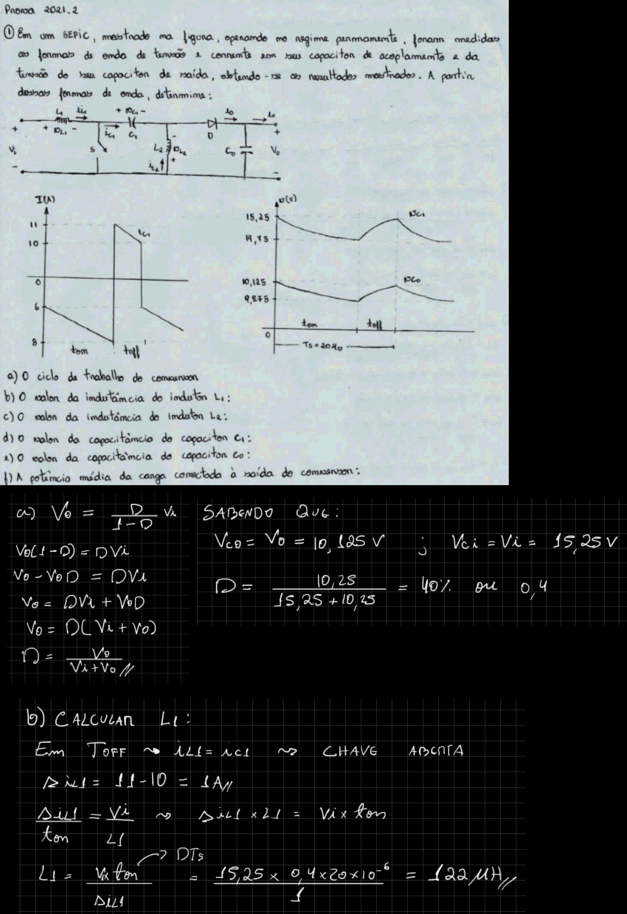 Prova 2021.2
① Em um SEPIC, mostrado na figura, operando no regime permanente, foram medidas
as formas de onda de tensão e corrente em seu capacitor de acoplamento e da
tensão do seu capacitor de saída, obtendo-se os resultados mostrados. A partir
dessas formas de onda, determine:
L1 iL1 + vC1 - D io io
+ + vL1 - iC1 C1 +
Vi S L2 vL2 Co Vo
iL2
- -
I(A)
11
10
iC1
0
6
8
ton toff
v(V)
15,25
vC1
14,75
10,125
vCo
9,875
ton toff
0
Ts = 20μs
a) O ciclo de trabalho do conversor
b) O valor da indutância do indutor L1:
c) O valor da indutância do indutor L2:
d) O valor da capacitância do capacitor C1:
e) O valor da capacitância do capacitor Co:
f) A potência média da carga conectada à saída do conversor:
a) Vo = D/(1-D) Vi
Vo(1-D) = DVi
Vo - VoD = DVi
Vo = DVi + VoD
Vo = D(Vi + Vo)
D = Vo/(Vi+Vo) //
SABENDO QUE:
VCO = Vo = 10,125 V ; Vci = Vi = 15,25V
D = 10,25/(15,25+10,25) = 40% ou 0,4
b) CALCULAR L1:
Em TOFF ⇝ iL1 = iC1 ⇝ CHAVE ABERTA
ΔiL1 = 11-10 = 1A//
ΔiL1/ton = Vi/L1 ⇝ ΔiL1 × L1 = Vi × ton
→ DTs
L1 = Vi × ton/ΔiL1 = 15,25 × 0,4 × 20 × 10⁻⁶/1 = 122 μH//